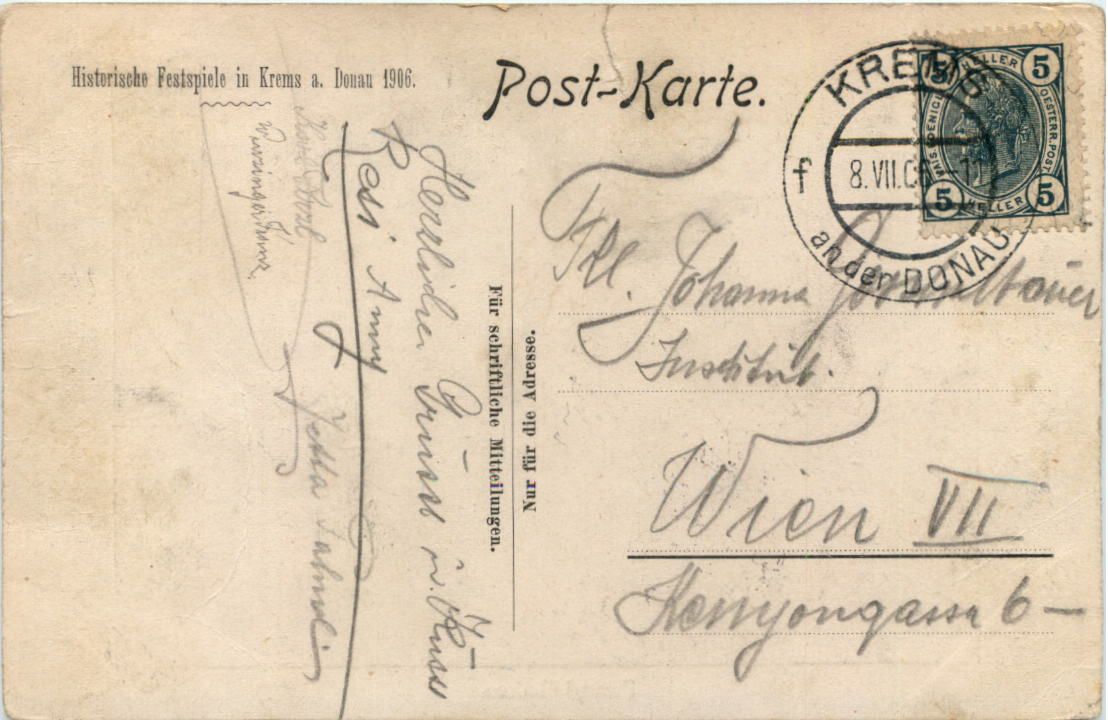 Historische Festspiele in Krems a. Donau 1906.
Post-Karte.
KREMS
an der DONAU
f
8.VII.06
11
5 HELLER 5
KAIS. KOENIGL.
OESTERR. POST
5 HELLER 5
Herzliche Grüsse u. Küsse
Resi Anny
Jetta
Für schriftliche Mitteilungen.
Nur für die Adresse.
Frl. Johanna
Institut.
Wien VII
Kenyongasse 6 –